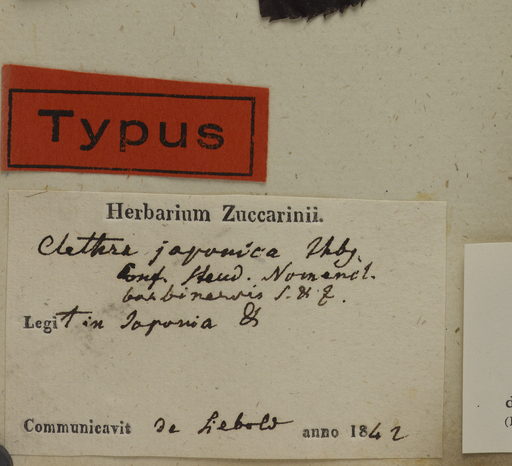 Typus
Herbarium Zuccarinii.
Clethra japonica Thbg.
Conf. Steud. Nomencl.
barbinervis S. & Z.
Legit in Japonia
Communicavit de Siebold anno 1842
d